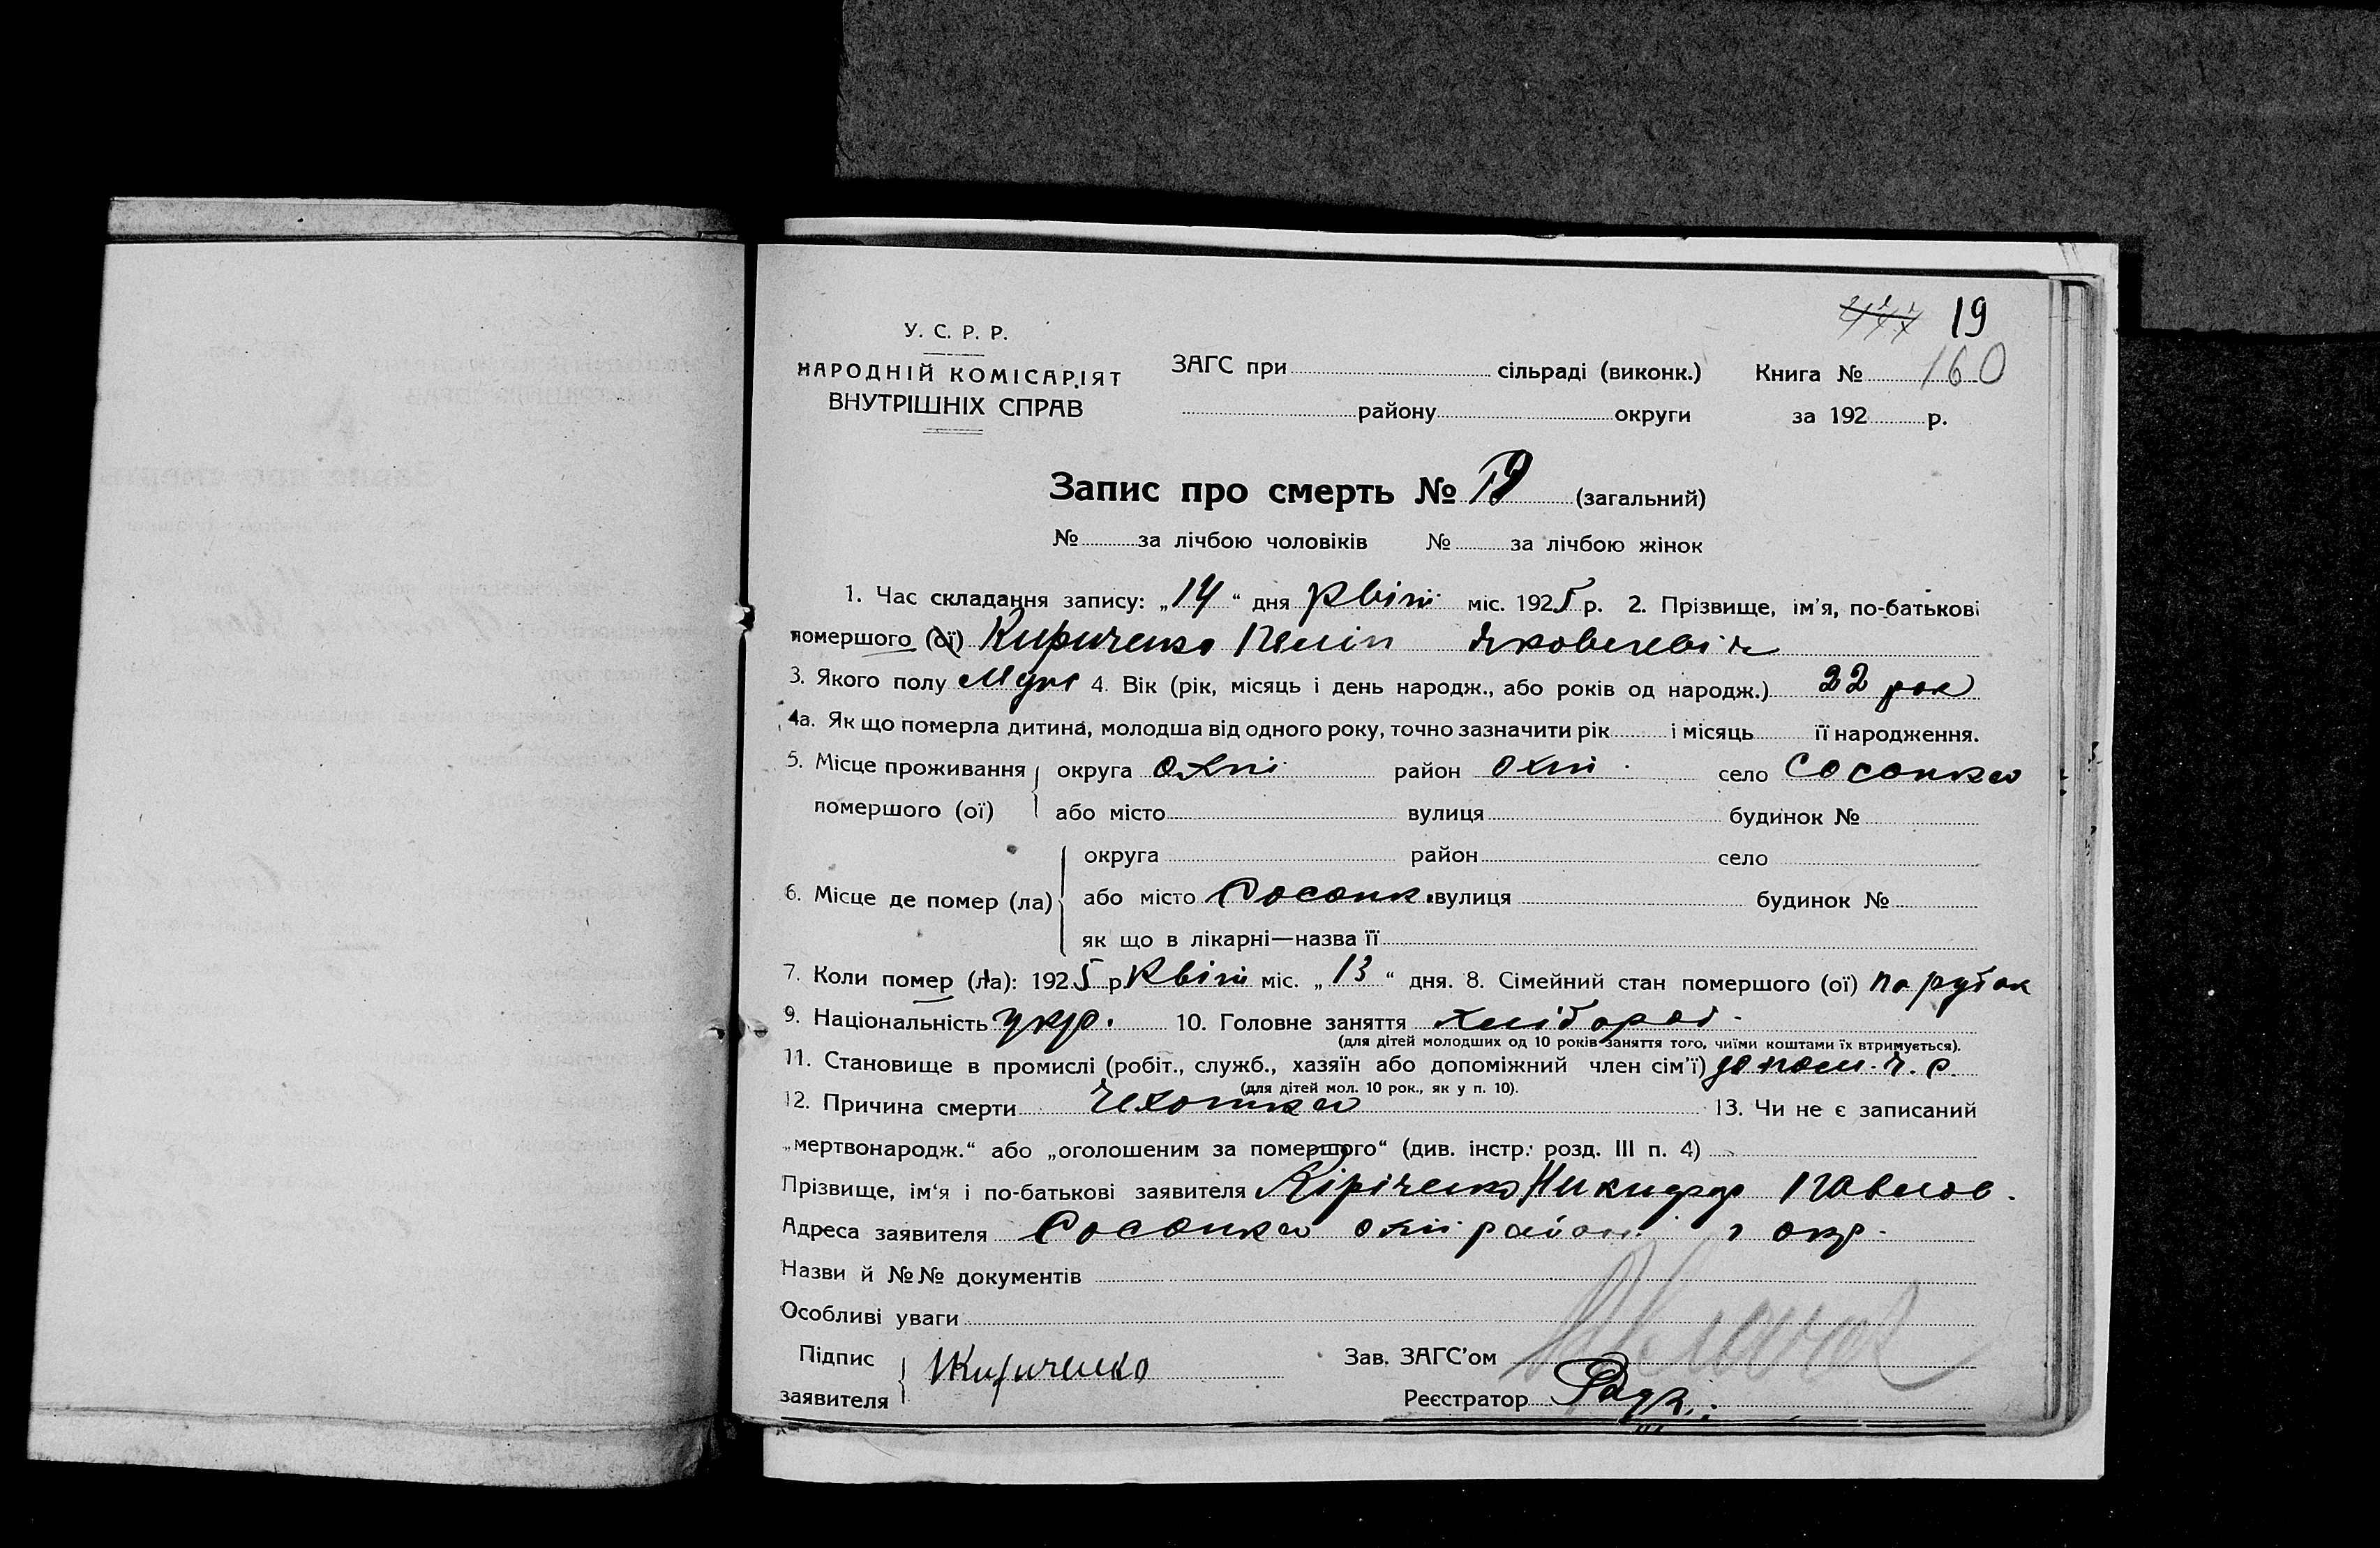 19
У. С. Р. Р.
НАРОДНІЙ КОМІСАРІЯТ
ВНУТРІШНІХ СПРАВ
ЗАГС при сільраді (виконк.)
району округи
Книга № 160
за 192 р.
Запис про смерть № 19 (загальний)
№ за лічбою чоловіків № за лічбою жінок
1. Час складання запису: „14“ дня Квітн міс. 1925 р. 2. Прізвище, ім'я, по-батькові
помершого (ої) Кириченко Яковлевіч
3. Якого полу Муж 4. Вік (рік, місяць і день народж., або років од народж.) 22 рок
4а. Як що померла дитина, молодша від одного року, точно зазначити рік і місяць її народження.
5. Місце проживання помершого (ої) округа Охт район Охт село Сосонка
або місто вулиця будинок №
6. Місце де помер (ла) округа район село
або місто Сосонк. вулиця будинок №
як що в лікарні—назва її
7. Коли помер (ла): 1925 р. Квітн міс. „13“ дня. 8. Сімейний стан помершого (ої) парубок
9. Національність укр. 10. Головне заняття хлібороб.
(для дітей молодших од 10 років заняття того, чиїми коштами їх втримується).
11. Становище в промислі (робіт., служб., хазяїн або допоміжний член сім'ї) допом. ч. с.
(для дітей мол. 10 рок., як у п. 10).
12. Причина смерти Чехотка 13. Чи не є записаний
„мертвонародж.“ або „оголошеним за помершого“ (див. інстр. розд. III п. 4)
Прізвище, ім'я і по-батькові заявителя Кіріченко Никифор Павлов.
Адреса заявителя Сосонка Охт район і окр.
Назви й №№ документів
Особливі уваги
Підпис заявителя Кириченко
Зав. ЗАГС'ом
Реєстратор